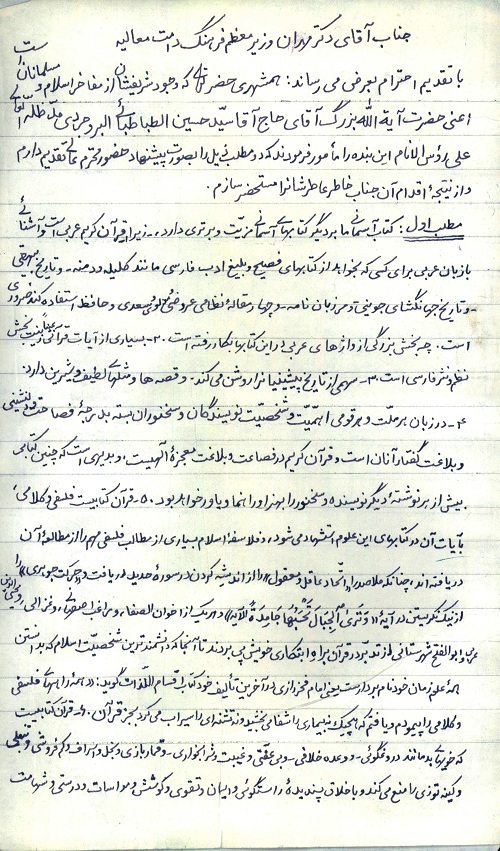 جناب آقای دکتر مهران وزیر معظم فرهنگ دامت معالیه
با تقدیم احترام بعرض می رساند: همشهری حضرتعالی که وجود شریفشان از مفاخر اسلام و مسلمانان است
اعنی حضرت آیة الله بزرگ آقای حاج آقا سید حسین الطباطبائی البروجردی مد ظله العالی
علی رؤس الانام این بنده را مأمور فرمودند که دو مطلب ذیل را بصورت پیشنهاد حضور محترم عالی تقدیم دارم
و از نتیجهٔ اقدام آن جناب خاطر عاطرشانرا مستحضر سازم.
مطلب اول: کتاب آسمانی ما بر دیگر کتابهای آسمانی مزیت و برتری دارد، ۱- زیرا قرآن کریم عربی است و آشنائی
با زبان عربی برای کسی که بخواهد از کتابهای فصیح و بلیغ ادب فارسی مانند کلیله و دمنه - و تاریخ بیهقی
- و تاریخ جهانگشای جوینی و مرزبان نامه - و چهار مقالهٔ نظامی عروضی سعدی و حافظ استفاده کند ضروری
است. چه بخش بزرگی از واژه های عربی در این کتابها بکار رفته است. ۲- بسیاری از آیات قرآنی زینت بخش
نظم و نثر فارسی است. ۳- سهمی از تاریخ پیشینیانرا روشن می کند. و قصه ها و مثلهای لطیف و شیرین دارد.
۴- در زبان هر ملت و هر قومی اهمیت و شخصیت نویسندگان و سخنوران بسته بدرجهٔ فصاحت و دلنشینی
و بلاغت گفتار آنان است و قرآن کریم در فصاحت و بلاغت معجزهٔ الهیست، و بدیهی است که چنین کتابی
بیش از هر نوشتهٔ دیگر نویسنده و سخنور را بهنر او راهنما و یاور خواهد بود. ۵- قرآن کتابیست فلسفی و کلامی،
بآیات آن در کتابهای این علوم استشهاد می شود، و فلاسفهٔ اسلام بسیاری از مطالب فلسفی مهم را از مطالعهٔ آن
در یافته اند، چنانکه ملاصدرا «اتحاد عاقل و معقول» را از اندیشه کردن در سورهٔ حدید دریافت و «حرکت جوهری» را
از نیک نگریستن در آیهٔ «وَتَرَی الْجِبالَ تَحْسَبُها جامِدَةً الآیه» و هریک از اخوان الصفا، و راغب اصفهانی، و غزالی
و ابوالفتح شهرستانی از تدبر در قرآن برا و ابتکاری خویش پی بردند تا آنجا که دانشمندترین شخصیت اسلام که بدانستن
همهٔ علوم زمان خود نام بردار است یعنی امام فخر رازی در آخرین تألیف خود کتاب اقسام اللذات گوید: «همهٔ راههای فلسفی
و کلامی را پیمودم و دیافتم که هیچیک نه بیماری را شفا می بخشید و نه تشنه ای را سیراب می کرد بجز قرآن. ۶- قرآن کتابیست
که خویهای بد مانند دروغگوئی - و وعده خلافی - و بی عفتی و غیبت و شرابخواری - و قمار بازی و بخل و اسراف و کم فروشی و
و کینه توزی را منع می کند و باخلاق پسندیدهٔ راستگوئی و ایمان و تقوی و کوشش و مواسات و درستی و شهامت